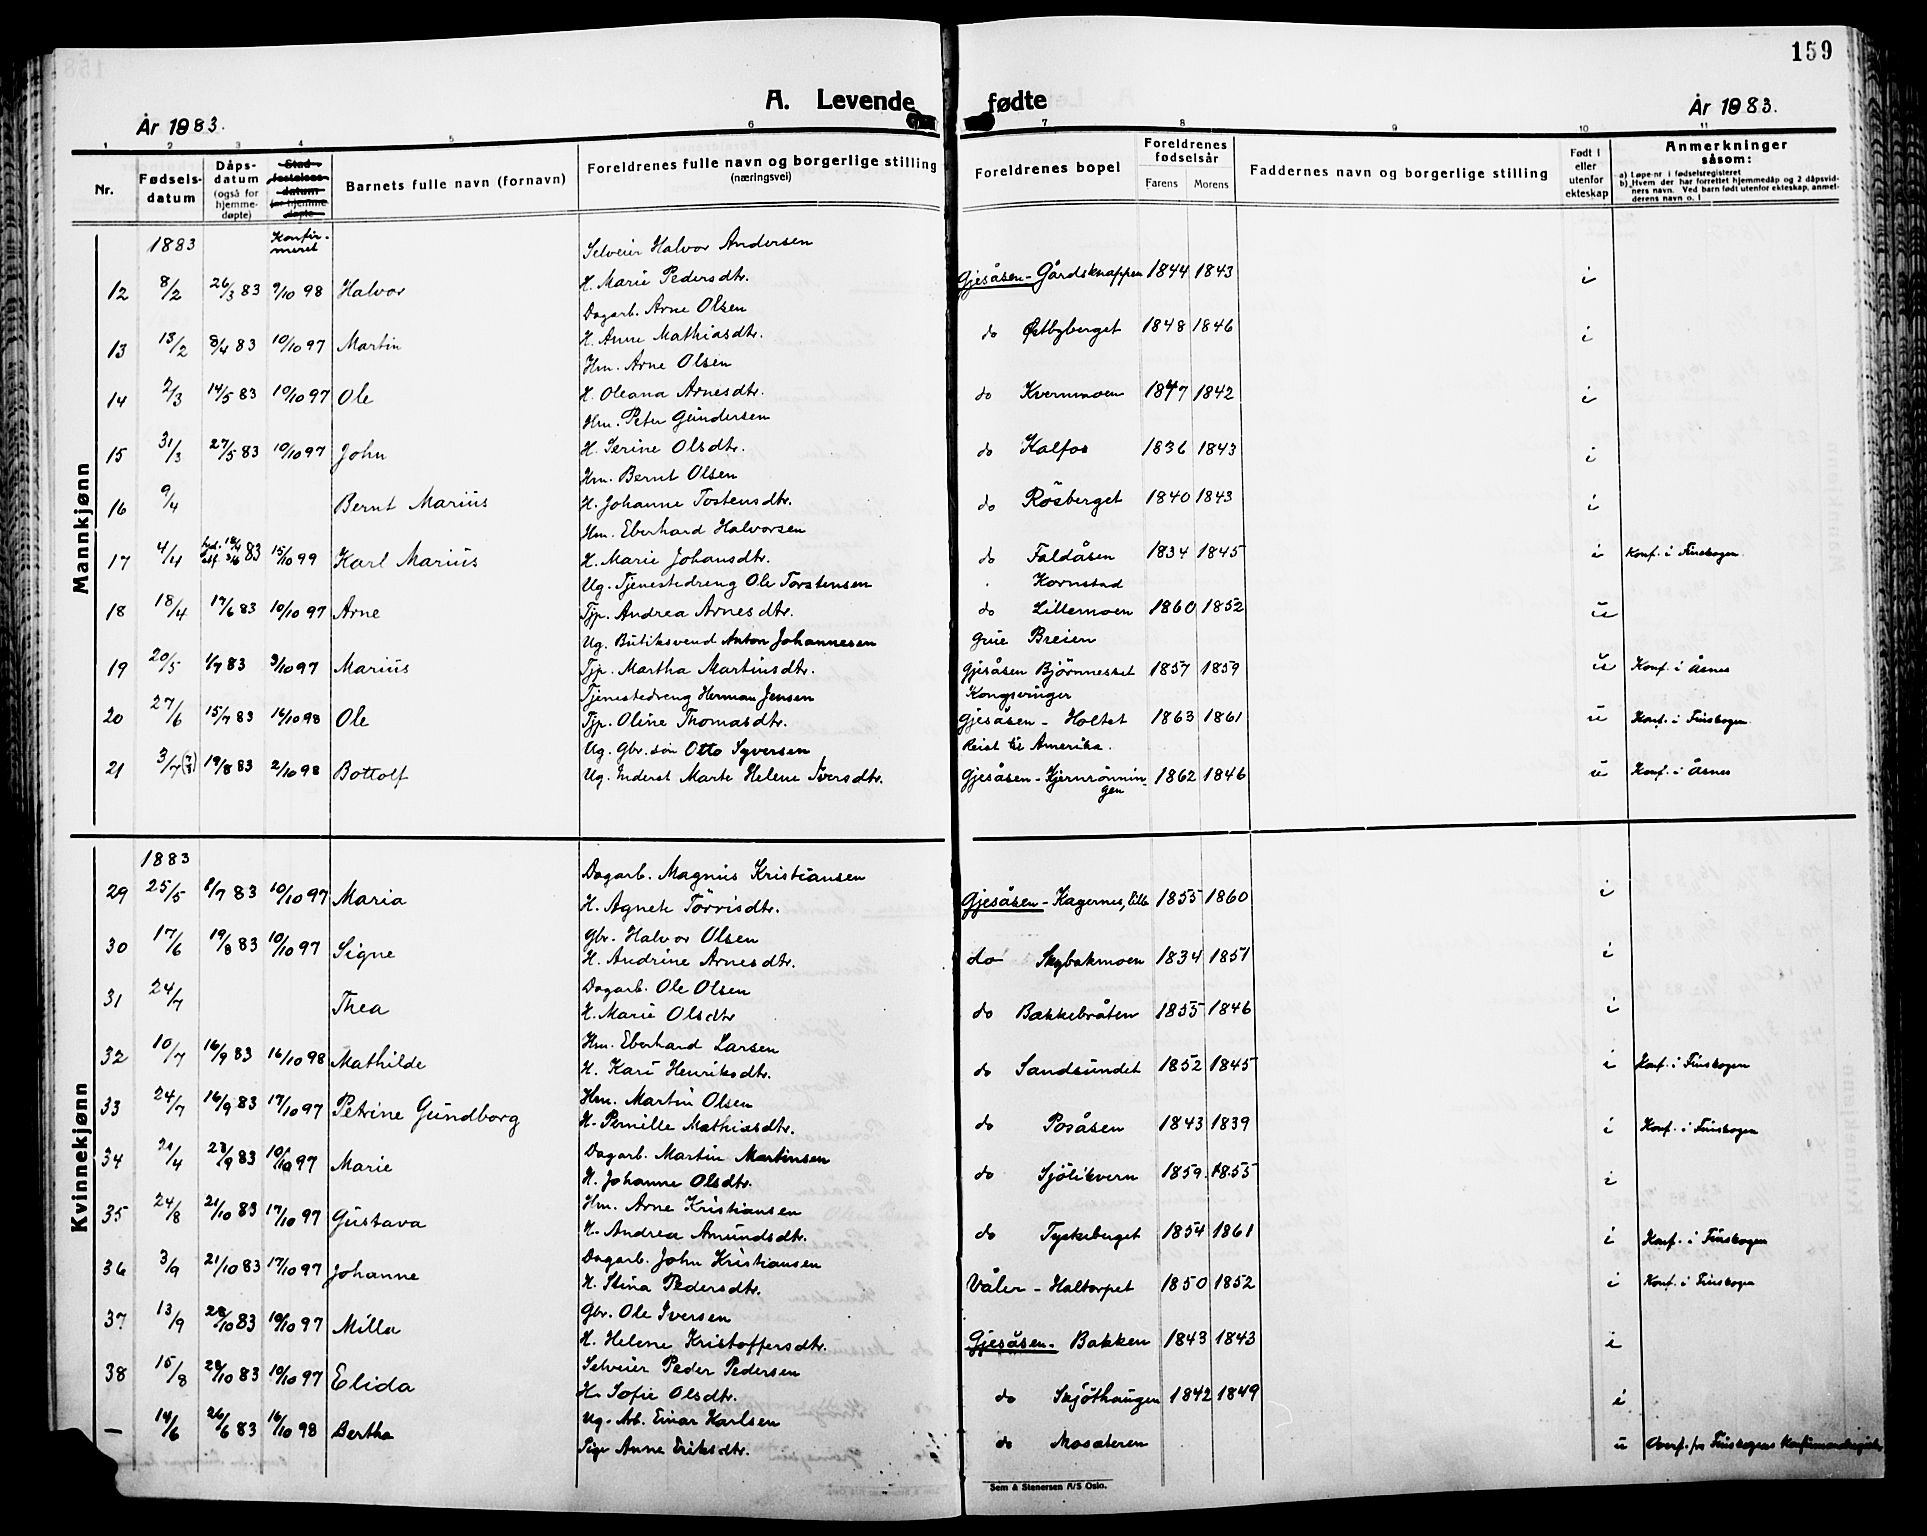 159
A. Levende fødte
År 1883.
År 1883.
1 2 3 4 5 6 7 8 9 10 11
Nr.
Fødsels-datum
Dåps-datum (også for hjemme-døpte)
Stad-festelses-datum for hjemme-døpte
Barnets fulle navn (fornavn)
Foreldrenes fulle navn og borgerlige stilling (næringsvei)
Foreldrenes bopel
Foreldrenes fødselsår
Farens Morens
Faddernes navn og borgerlige stilling
Født i eller utenfor ekteskap
Anmerkninger såsom:
a) Løpe-nr i fødselsregisteret
b) Hvem der har forrettet hjemmedåp og 2 dåpsvid-ners navn. Ved barn født utenfor ekteskap, anmel-derens navn o. l
Mannkjønn
1883 Konfir-meret
12 8/2 26/3 83 9/10 98 Halvor Selveier Halvor Andersen
H. Marie Pedersdtr. Gjesåsen - Gårdsknappen 1844 1843 i
13 13/2 8/4 83 10/10 97 Martin Dagarb. Arne Olsen
H. Anne Mathiasdtr. do Østbyberget 1848 1846 i
14 2/3 14/5 83 10/10 97 Ole Hm. Arne Olsen
H. Oleana Arnesdtr. do Kvernmoen 1847 1842 i
15 31/3 27/5 83 10/10 97 John Hm. Peter Gundersen
H. Serine Olsdtr. do Kalfos 1836 1843 i
16 9/4 Bernt Marius Hm. Bernt Olsen
H. Johanne Tostensdtr. do Røsberget 1840 1843 i
17 4/4 83 15/10 99 Karl Marius Hm. Eberhard Halvorsen
H. Marie Johansdtr. do Faldåsen 1834 1845 i Konf. i Finskogen.
18 18/4 17/6 83 10/10 97 Arne Ug. Tjenestedreng Ole Torstensen Kornstad
Tjp. Andrea Arnesdtr. do Lillemoen 1860 1852 u
19 20/5 1/7 83 3/10 97 Marius Ug. Butiksvend Anton Johannesen Grue Breien
Tjp. Martha Martinsdtr. Gjesåsen Bjørnnesset 1857 1859 u Konf. i Åsnes
20 27/6 15/7 83 16/10 98 Ole Tjenestedreng Herman Jensen Kongsvinger
Tjp. Oline Thomasdtr. Gjesåsen - Holtet 1863 1861 u Konf. i Finskogen
21 3/7 19/8 83 2/10 98 Bottolf Ug. Gbr. søn Otto Syversen Reist til Amerika.
Ug. Inderst Marte Helene Iversdtr. Gjesåsen - Kjernrønnin-gen 1862 1846 u Konf. i Åsnes
Kvinnekjønn
1883
29 25/5 8/7 83 10/10 97 Maria Dagarb. Magnus Kristiansen
H. Agnete Tørrisdtr. Gjesåsen - Kagernes, lille 1855 1860 i
30 17/6 19/8 83 10/10 97 Signe Gbr. Halvor Olsen
H. Andrine Arnesdtr. do Skybakmoen 1834 1851 i
31 24/7 Thea Dagarb. Ole Olsen
H. Marie Olsdtr do Bækkebråten 1855 1846 i
32 10/7 16/9 83 16/10 98 Mathilde Hm. Eberhard Larsen
H. Kari Henriksdtr. do Sandsundet 1852 1845 i Konf. i Finskogen
33 24/7 16/9 83 17/10 97 Petrine Gundborg Hm. Martin Olsen
H. Pernille Mathiasdtr. do Posåsen 1843 1839 i Konf. i Finskogen
34 21/4 23/9 83 10/10 97 Marie Dagarb. Martin Martinsen
H. Johanne Olsdtr. do Sjølikvern 1859 1855 i
35 24/8 21/10 83 17/10 97 Gustava Hm. Arne Kristiansen
H. Andrea Amundsdtr. do Tyskeberget 1854 1861 i Konf. i Finskogen
36 3/9 21/10 83 17/10 97 Johanne Dagarb. John Kristiansen
H. Stina Pedersdtr. Våler - Haltorpet 1850 1852 i Konf. i Finskogen
37 13/9 28/10 83 10/10 97 Milla Gbr. Ole Iversen
H. Helene Kristoffersdtr. Gjesåsen - Bakken 1843 1843 i
38 15/8 28/10 83 10/10 97 Elida Selveier Peder Pedersen
H. Sofie Olsdtr. do Skjøthaugen 1842 1849 i
— 14/6 26/6 83 16/10 98 Bertha Ug. Arb. Einar Karlsen
Pige Anne Eriksdtr. do Mosæteren u Overf. fra Finskogens
Sem & Stenersen A/S Oslo.